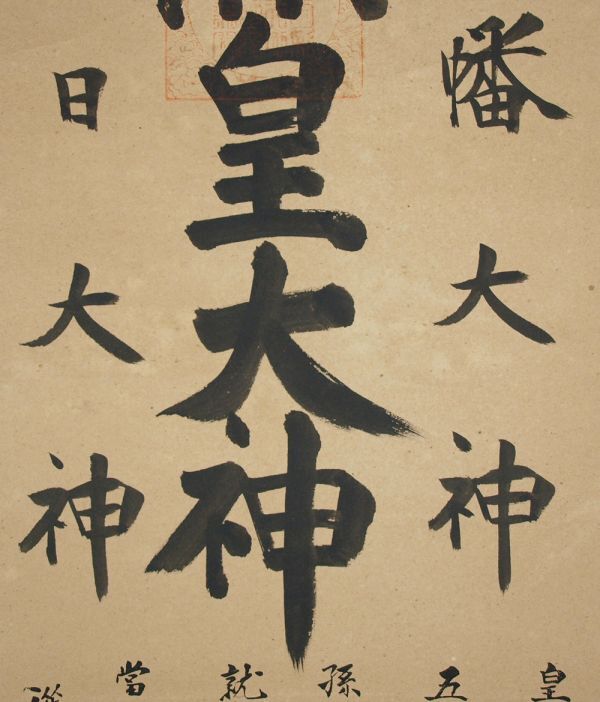 幡大神
皇大神
日大神
皇
五
孫
就
當